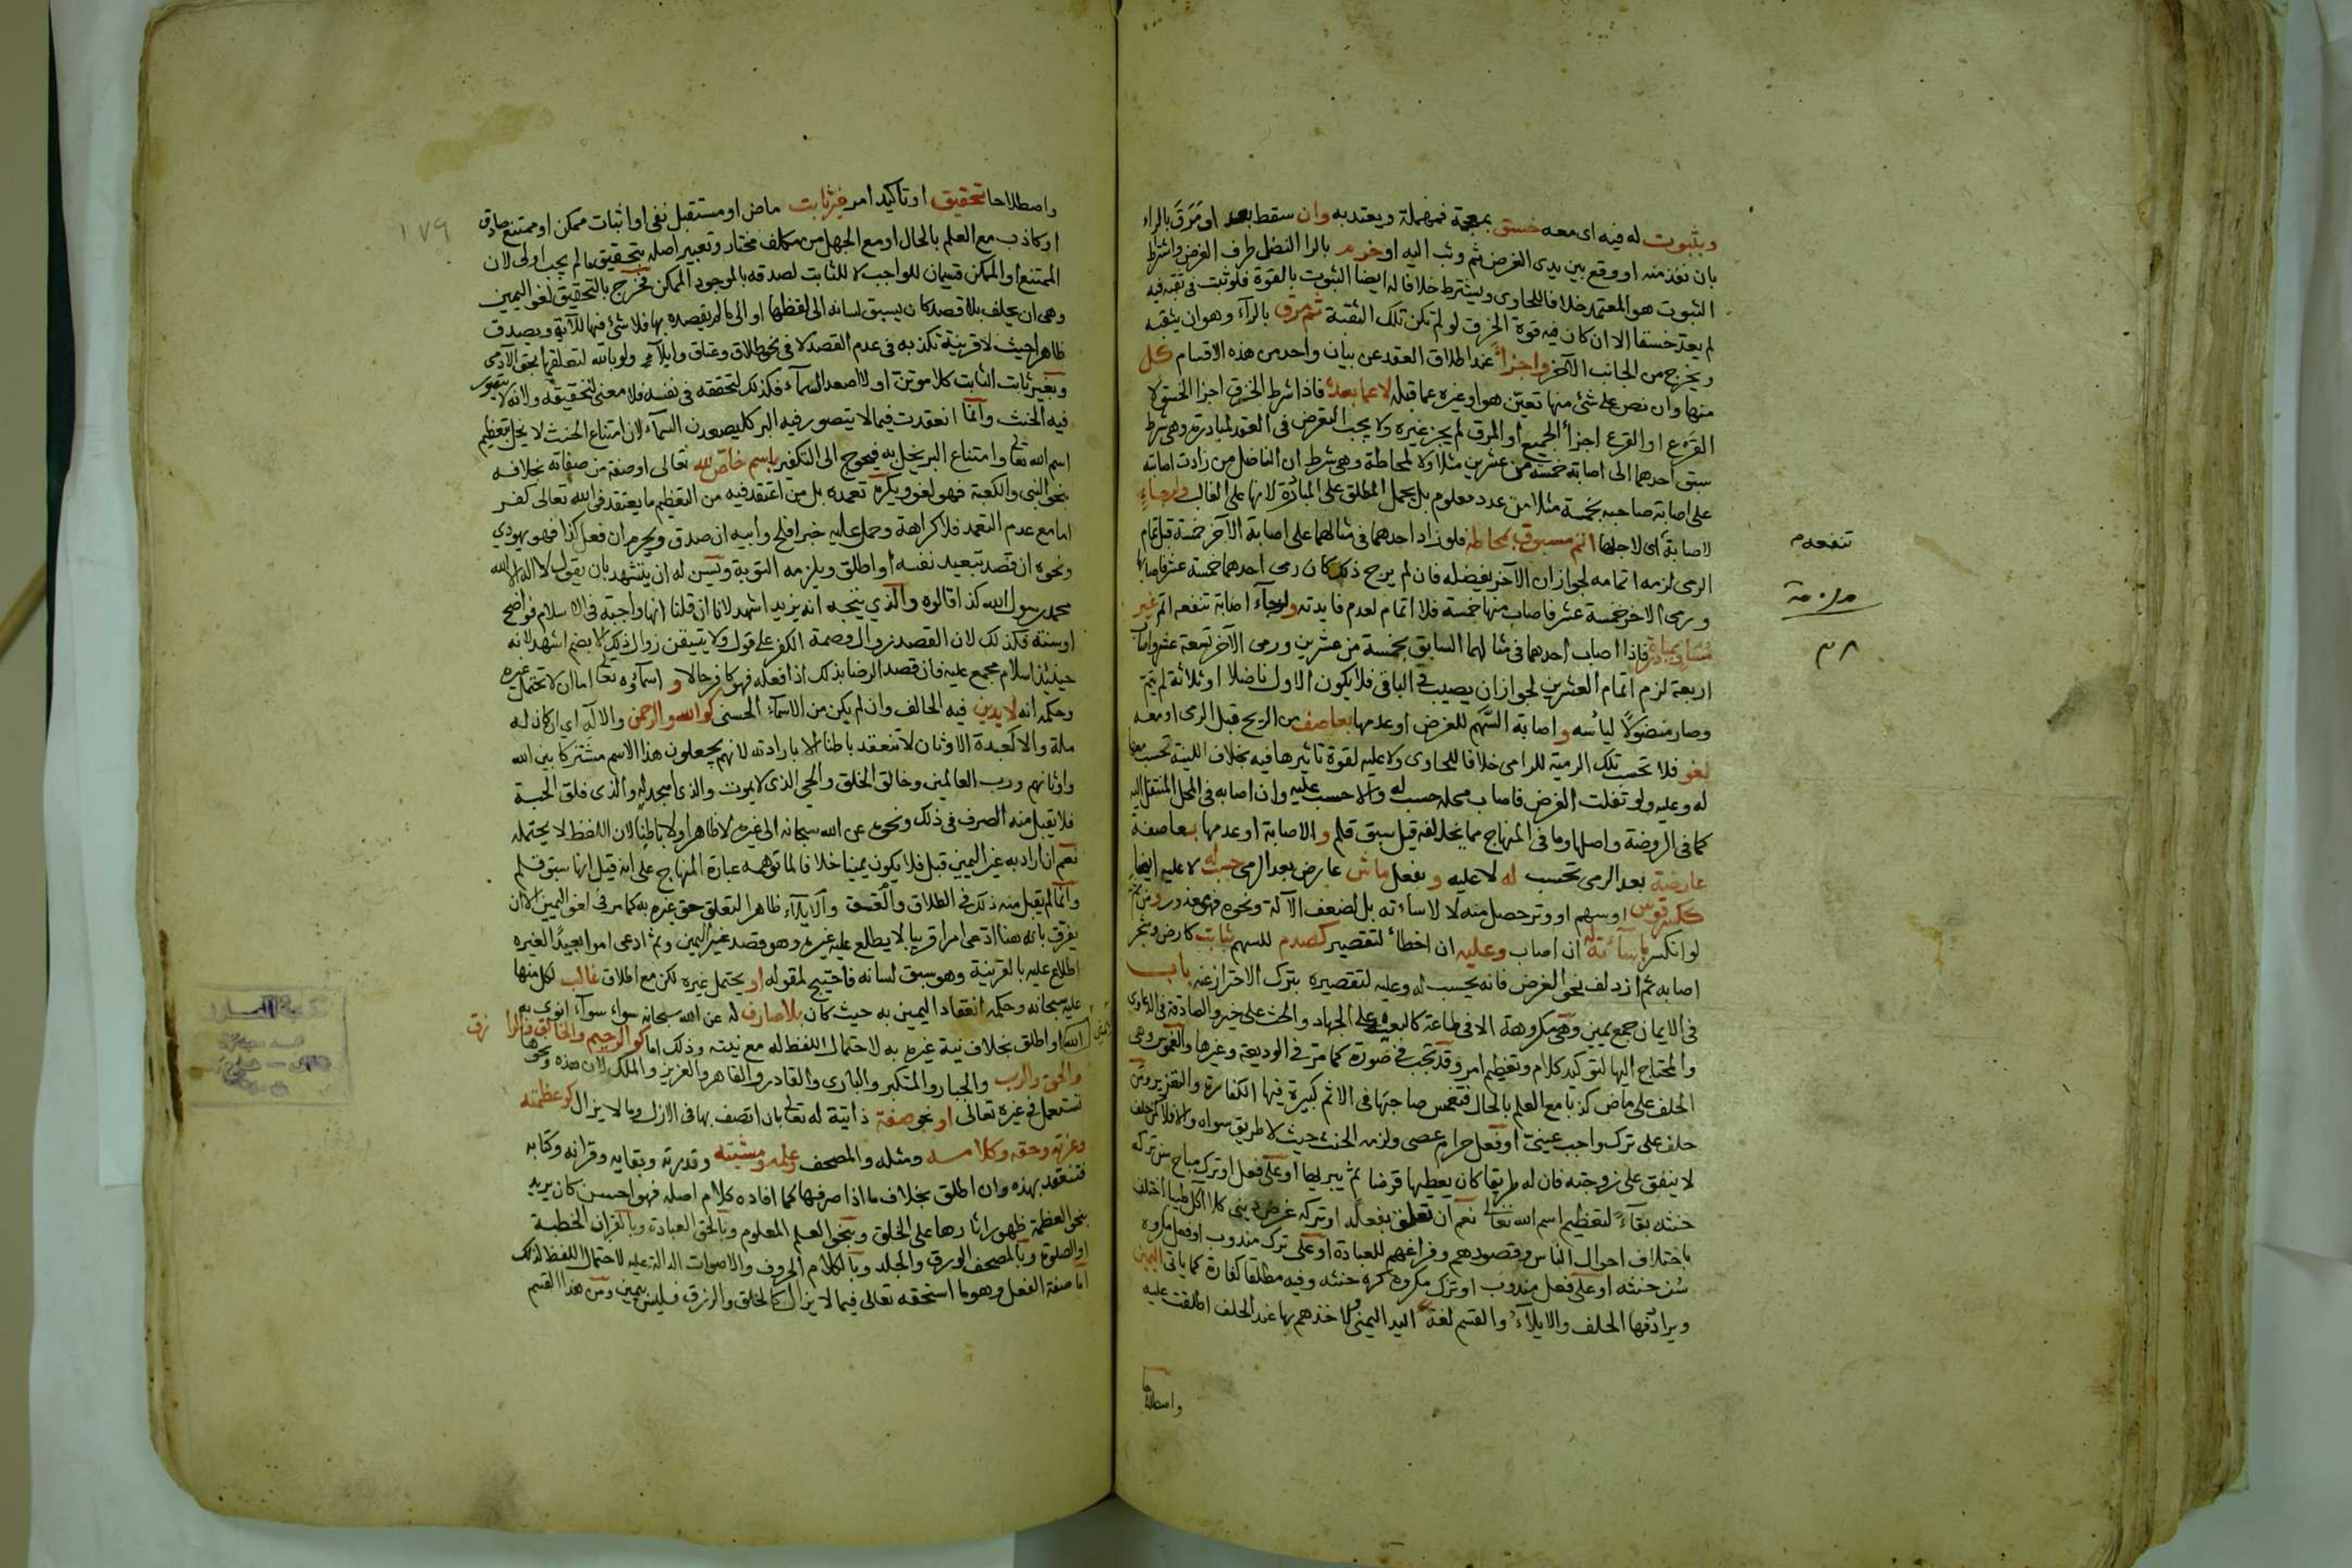 وبثبوت له فيه اى معه خسق بمعجمة فمهملة ويعتد به وان سقط بعد او مرق بالراء
بان نفذ منه او وقع بين يدى الغرض ثم وثب اليه او خرم بالرا النصل طرف الغرض واشتراط
الثبوت هو المعتمد خلافا للحاوى ويشترط خلافا له ايضا الثبوت بالقوة فلو ثبت فى ثقبة فيه
لم يعتد خسقا الا ان كان فيه قوة الخرق لو لم تكن تلك الثقبة ثم مرق بالرآء وهو ان يثقبه
ويخرج من الجانب الآخر واجزأ عند اطلاق العقد عن بيان واحد من هذه الاقسام كل
منها وان نص على شئ منها تعين هو او غيره عما قبله لا عما بعده فاذا شرط الخرق اجزا الخسق لا
القرع او القرع اجزأ الجميع او المرق لم يجز غيره ولا يجب التعرض فى العقد لمبادرة وهى شرط
سبق احدهما الى اصابة خمسة من عشرين مثلا ولا لمحاطة وهى شرط ان الناضل من زادت اصابته
على اصابة صاحبه بخمسة مثلا من عدد معلوم بل يحمل المطلق على المبادرة لانها على الغالب ولرجاء
لاصابة اى لاجلها اتم مسبوق بمحاطة فلو زاد احدهما فى مثالهما على اصابة الآخر خمسة قبل تمام
الرمى لزمه اتمامه لجواز ان الآخر يفضله فان لم يرج ذلك كان رمى احدهما خمسة عشر فاصابها
ورمى الاخر خمسة عشر فاصاب منها خمسة فلا اتمام لعدم فايدته ولرجآء اصابة تنفعه اتم غير
مساو بمبادرة فاذا اصاب احدهما فى مثالهما السابق بخمسة من عشرين ورمى الآخر تسعة عشر واصاب
اربعة لزم اتمام العشرين لجواز ان يصيب فى الباقى فلا يكون الاول ناضلا او ثلاثة لم يتم
وصار منضولا ليأسه واصابة السهم للغرض او عدمها بعاصف من الريح قبل الرمى او معه
لغو فلا تحسب تلك الرمية للرامى خلافا للحاوى ولا عليه لقوة تاثيرها فيه بخلاف اللينة تحسب معها
له وعليه ولو نقلت الغرض فاصاب محله حسب له والا حسب عليه وان اصابه فى المحل المنتقل اليه
كما فى الروضة واصلها وما فى المنهاج مما يخالفه قيل سبق قلم والاصابة او عدمها بعاصفة
عارضة بعد الرمى تحسب له لا عليه وبفعل ماش عارض بعد الرمى حسب له لا عليه ايضا
ككسر قوس او سهم او وتر حصل منه لا لاساءته بل لضعف الآلة ونحوه فهو معذور ومن ثم
لو انكسر باساءته له ان اصاب وعليه ان اخطأ لتقصير كصدم للسهم بثابت كارض وشجر
اصابه ثم ازدلف نحو الغرض فانه يحسب له وعليه لتقصيره بترك الاحتراز عنه باب
فى الايمان جمع يمين وهى مكروهة الا فى طاعة كالبيعة على الجهاد والحث على خير والصادقة فى الدعاوى
والمحتاج اليها لتوكيد كلام وتعظيم امر وقد تجب فى صورة كما مر فى الوديعة وغيرها والغموس وهى
الحلف على ماض كذبا مع العلم بالحال فتغمس صاحبها فى الاثم كبيرة فيها الكفارة والتعزير ومن
حلف على ترك واجب عينى او فعل حرام عصى ولزمه الحنث حيث لا طريق سواه والا فلا كمن حلف
لا ينفق على زوجته فان له طريقا كان يعطيها قرضا ثم يبريها او على فعل او ترك مباح سن ترك
حنثه بقآء لتعظيم اسم الله تعالى نعم ان تعلق بفعله او تركه غرض دينى كلا آكل طيبا اختلف
باختلاف احوال الناس وقصودهم وفراغهم للعبادة او على ترك مندوب او فعل مكروه
سن حنثه او على فعل مندوب او ترك مكروه كره حنثه وفيه مطلقا كفارة كما ياتى اليمين
ويرادفها الحلف والايلآء والقسم لغة اليد اليمنى لاخذهم بها عند الحلف اطلقت عليه
واصطلاحا
تنفعه م
٣٨
١٧٩
واصطلاحا تحقيق او تاكيد امر غير ثابت ماض او مستقبل نفى او اثبات ممكن او ممتنع صادق
او كاذب مع العلم بالحال او مع الجهل من مكلف مختار وتعبير اصله بتحقيق ما لم يجب اولى لان
الممتنع والممكن قسيمان للواجب لا للثابت لصدقه بالموجود الممكن فخرج بالتحقيق لغو اليمين
وهى ان يحلف بلا قصد كان يسبق لسانه الى لفظها او الى ما لم يقصده بها فلا شئ فيها للآية ويصدق
ظاهرا حيث لا قرينة تكذبه فى عدم القصد لا فى نحو طلاق وعتاق وايلآء ولو بالله لتعلقها بحق الآدمى
وبغير ثابت الثابت كلا موتن او لا اصعد السمآء فكذلك لتحققه فى نفسه فلا معنى لتحقيقه ولانه لا يتصور
فيه الحنث وانما انعقدت فيما لا يتصور فيه البر كليصعدن السمآء لان امتناع الحنث لا يخل بتعظيم
اسم الله تعالى وامتناع البر يخل به فيحوج الى التكفير باسم خاص لله تعالى او صفة من صفاته بخلافه
بنحو النبى والكعبة فهو لغو ويكره تعمده بل من اعتقد فيه من التعظيم ما يعتقد فى الله تعالى كفر
اما مع عدم التعمد فلا كراهة وحمل عليه خبر افلح وابيه ان صدق ويحرم ان فعل كذا فهو يهودي
ونحوه ان قصد تبعيد نفسه او اطلق ويلزمه التوبة ويسن له ان يتشهد بان يقول لا اله الا الله
محمد رسول الله كذا قالوه والذي يتجه انه يزيد اشهد لانا ان قلنا انها واجبة فى الاسلام فواضح
او سنة فكذلك لان القصد زوال وصمة الكفر على قول ولا يتيقن زوال ذلك الا بضم اشهد لانه
حينئذ اسلام مجمع عليه فان قصد الرضا بذلك اذا فعله فهو كافر حالا و اسمآوه تعالى اما ان لا تحتمل غيره
وحكمه انه لا يدين فيه الحالف وان لم يكن من الاسمآء الحسنى كوالله والرحمن والاله اي ان كان له
ملة والا كعبدة الاوثان لا تنعقد باطنا الا بارادته لانهم يجعلون هذا الاسم مشتركا بين الله
واوثانهم ورب العالمين وخالق الخلق والحي الذى لا يموت والذى اسجد له والذى فلق الحبة
فلا يقبل منه الصرف فى ذلك ونحوه عن الله سبحانه الى غيره لا ظاهرا ولا باطنا لان اللفظ لا يحتمله
نعم ان اراد به غير اليمين قبل فلا يكون يمينا خلافا لما توهمه عبارة المنهاج على انه قيل انها سبق قلم
وانما لم يقبل منه ذلك فى الطلاق والعتق والايلآء ظاهرا لتعلق حق غيره به كما مر فى لغو اليمين الا ان
يفرق بانه هنا ادعى امرا قريبا لا يطلع عليه غيره وهو قصد غير اليمين وثم ادعى امرا بعيدا لغيره
اطلاع عليه بالقرينة وهو سبق لسانه فاحتيج لمقوله او يحتمل غيره لكن مع اطلاق غالب لكل منها
عليه سبحانه وحكمه انعقاد اليمين به حيث كان بلا صارف له عن الله سبحانه سواء سوآء انوى به
الله او اطلق بخلاف نية غيره به لاحتمال اللفظ له مع نيته وذلك اما كوالرحيم والخالق والرازق
والحق والرب والجبار والمتكبر والبارى والقادر والقاهر والعزيز والملك لان هذه ونحوها
تستعمل فى غيره تعالى او نحو صفة ذاتية له تعالى بان اتصف بها فى الازل وما لا يزال كوعظمته
وعزته وحقه وكلامه ومثله والمصحف وعلمه ومشيته وقدرته وبقايه وقرانه وكتابه
فتنعقد بهذه وان اطلق بخلاف ما اذا صرفها كما افاده كلام اصله فهو احسن كان يريد
بنحو العظمة ظهور اثارها على الخلق وبنحو العلم المعلوم وبالحق العبادة وبالقران الخطبة
او الصلوة وبالمصحف الورق والجلد وبالكلام الحروف والاصوات الدالة عليه لاحتمال اللفظ لذلك
اما صفة الفعل وهو ما استحقه تعالى فيما لا يزال كالخلق والرزق فليس بيمين ومن هذا القسم